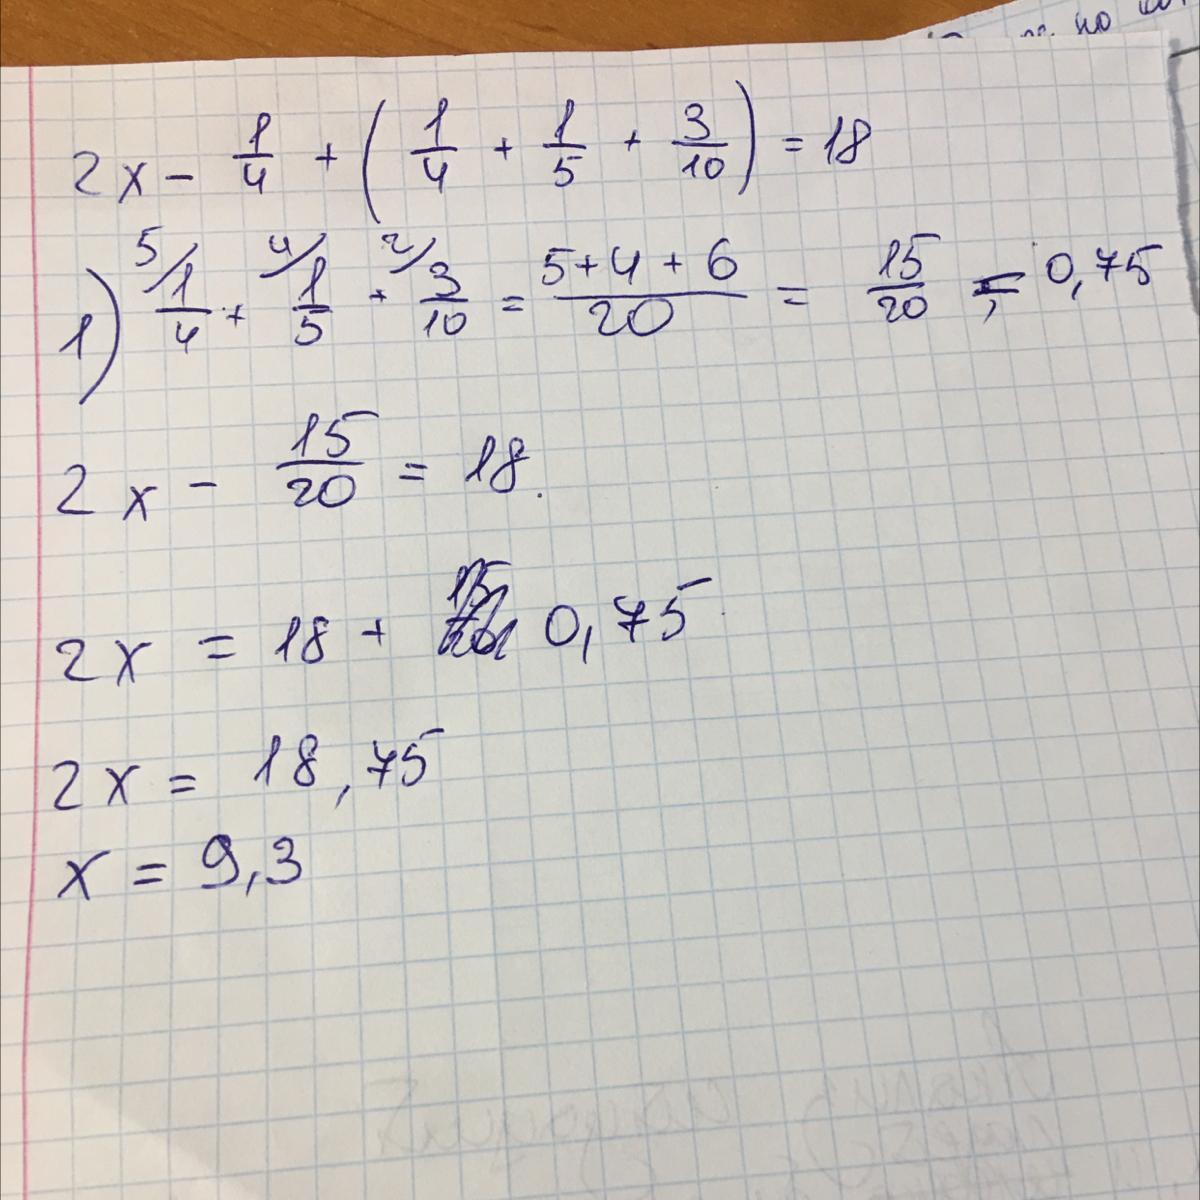 2x - 1/4 + (1/4 + 1/5 + 3/10) = 18
1) 5/ 1/4 + 4/ 1/5 + 2/ 3/10 = 5+4+6/20 = 15/20 = 0,75
2x - 15/20 = 18.
2x = 18 + 0,75
2x = 18,75
x = 9,3